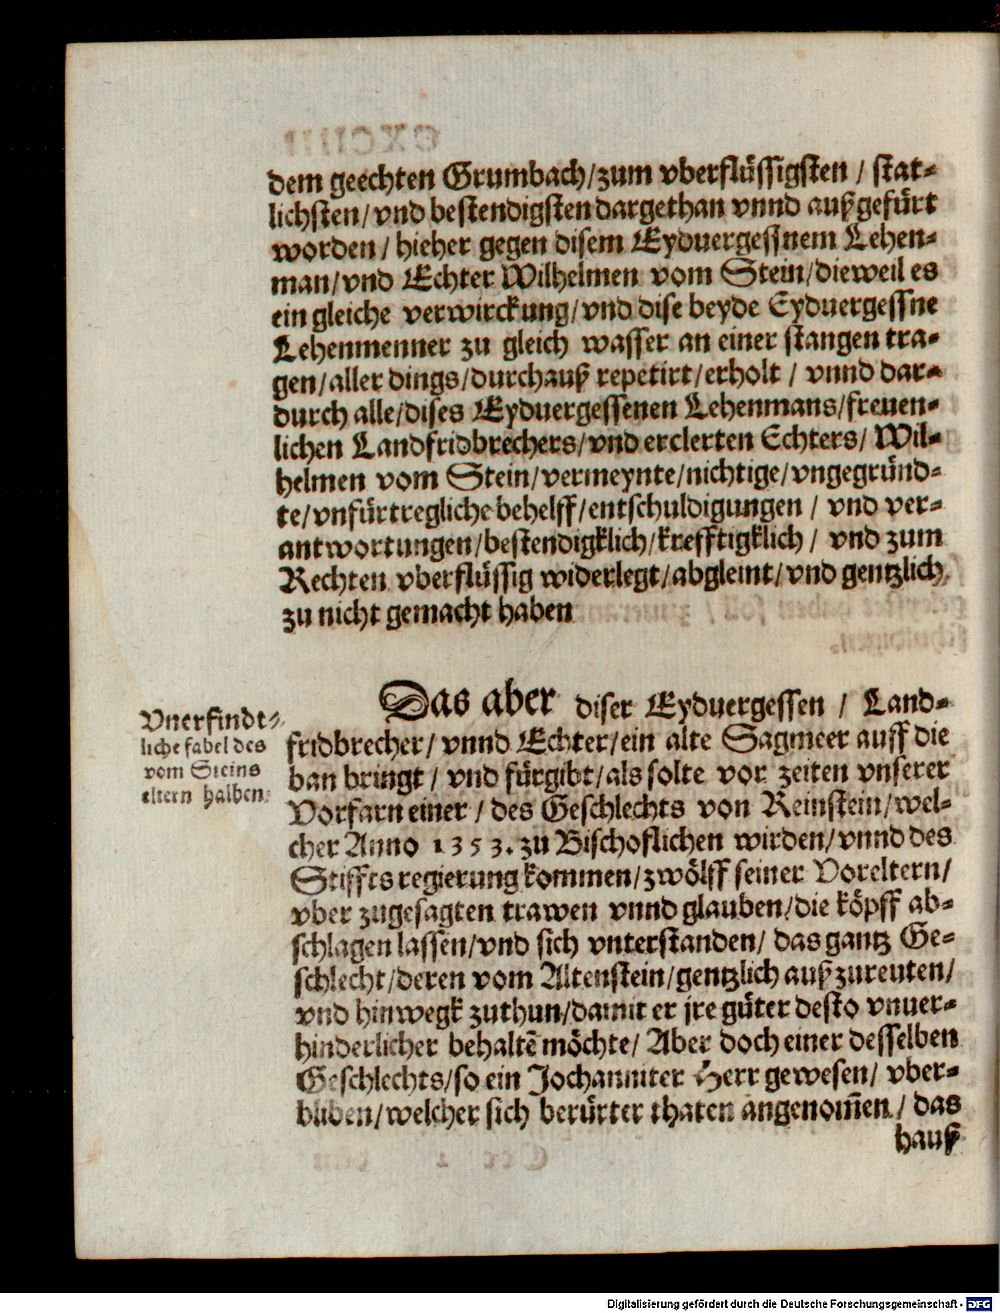 dem geechten Grumbach/zum vberflüssigsten / stat-
lichsten/vnd bestendigsten dargethan vnnd außgefürt
worden/ hieher gegen disem Eyduergessnem Lehen-
man/vnd Echter Wilhelmen vom Stein/dieweil es
ein gleiche verwirckung/vnd dise beyde Eyduergessne
Lehenmenner zu gleich wasser an einer stangen tra-
gen/aller dings/durchauß repetirt/erholt / vnnd dar-
durch alle/dises Eyduergessenen Lehenmans/freuen-
lichen Landfridbrechers/vnd erclerten Echters/ Wil-
helmen vom Stein/vermeynte/nichtige/vngegründ-
te/vnfürtregliche behelff/entschuldigungen / vnd ver-
antwortungen/bestendigklich/krefftigklich / vnd zum
Rechten vberflüssig widerlegt/abgleint/vnd gentzlich
zu nicht gemacht haben
Vnerfindt-
liche fabel des
vom Steins
eltern halben.
Das aber diser Eyduergessen / Land-
fridbrecher/ vnnd Echter/ein alte Sagmeer auff die
ban bringt / vnd fürgibt/als solte vor zeiten vnserer
Vorfarn einer / des Geschlechts von Reinstein/wel-
cher Anno 1353. zu Bischoflichen wirden/vnnd des
Stiffts regierung kommen/zwölff seiner Voreltern/
vber zugesagten trawen vnnd glauben/die köpff ab-
schlagen lassen/vnd sich vnterstanden/ das gantz Ge-
schlecht/deren vom Altenstein/gentzlich außzureuten/
vnd hinwegk zuthun/damit er jre güter desto vnuer-
hinderlicher behaltē möchte/ Aber doch einer desselben
Geschlechts/so ein Johanniter Herr gewesen/ vber-
bliben/welcher sich berürter thaten angenom̄en / das
hauß
Digitalisierung gefördert durch die Deutsche Forschungsgemeinschaft - DFG